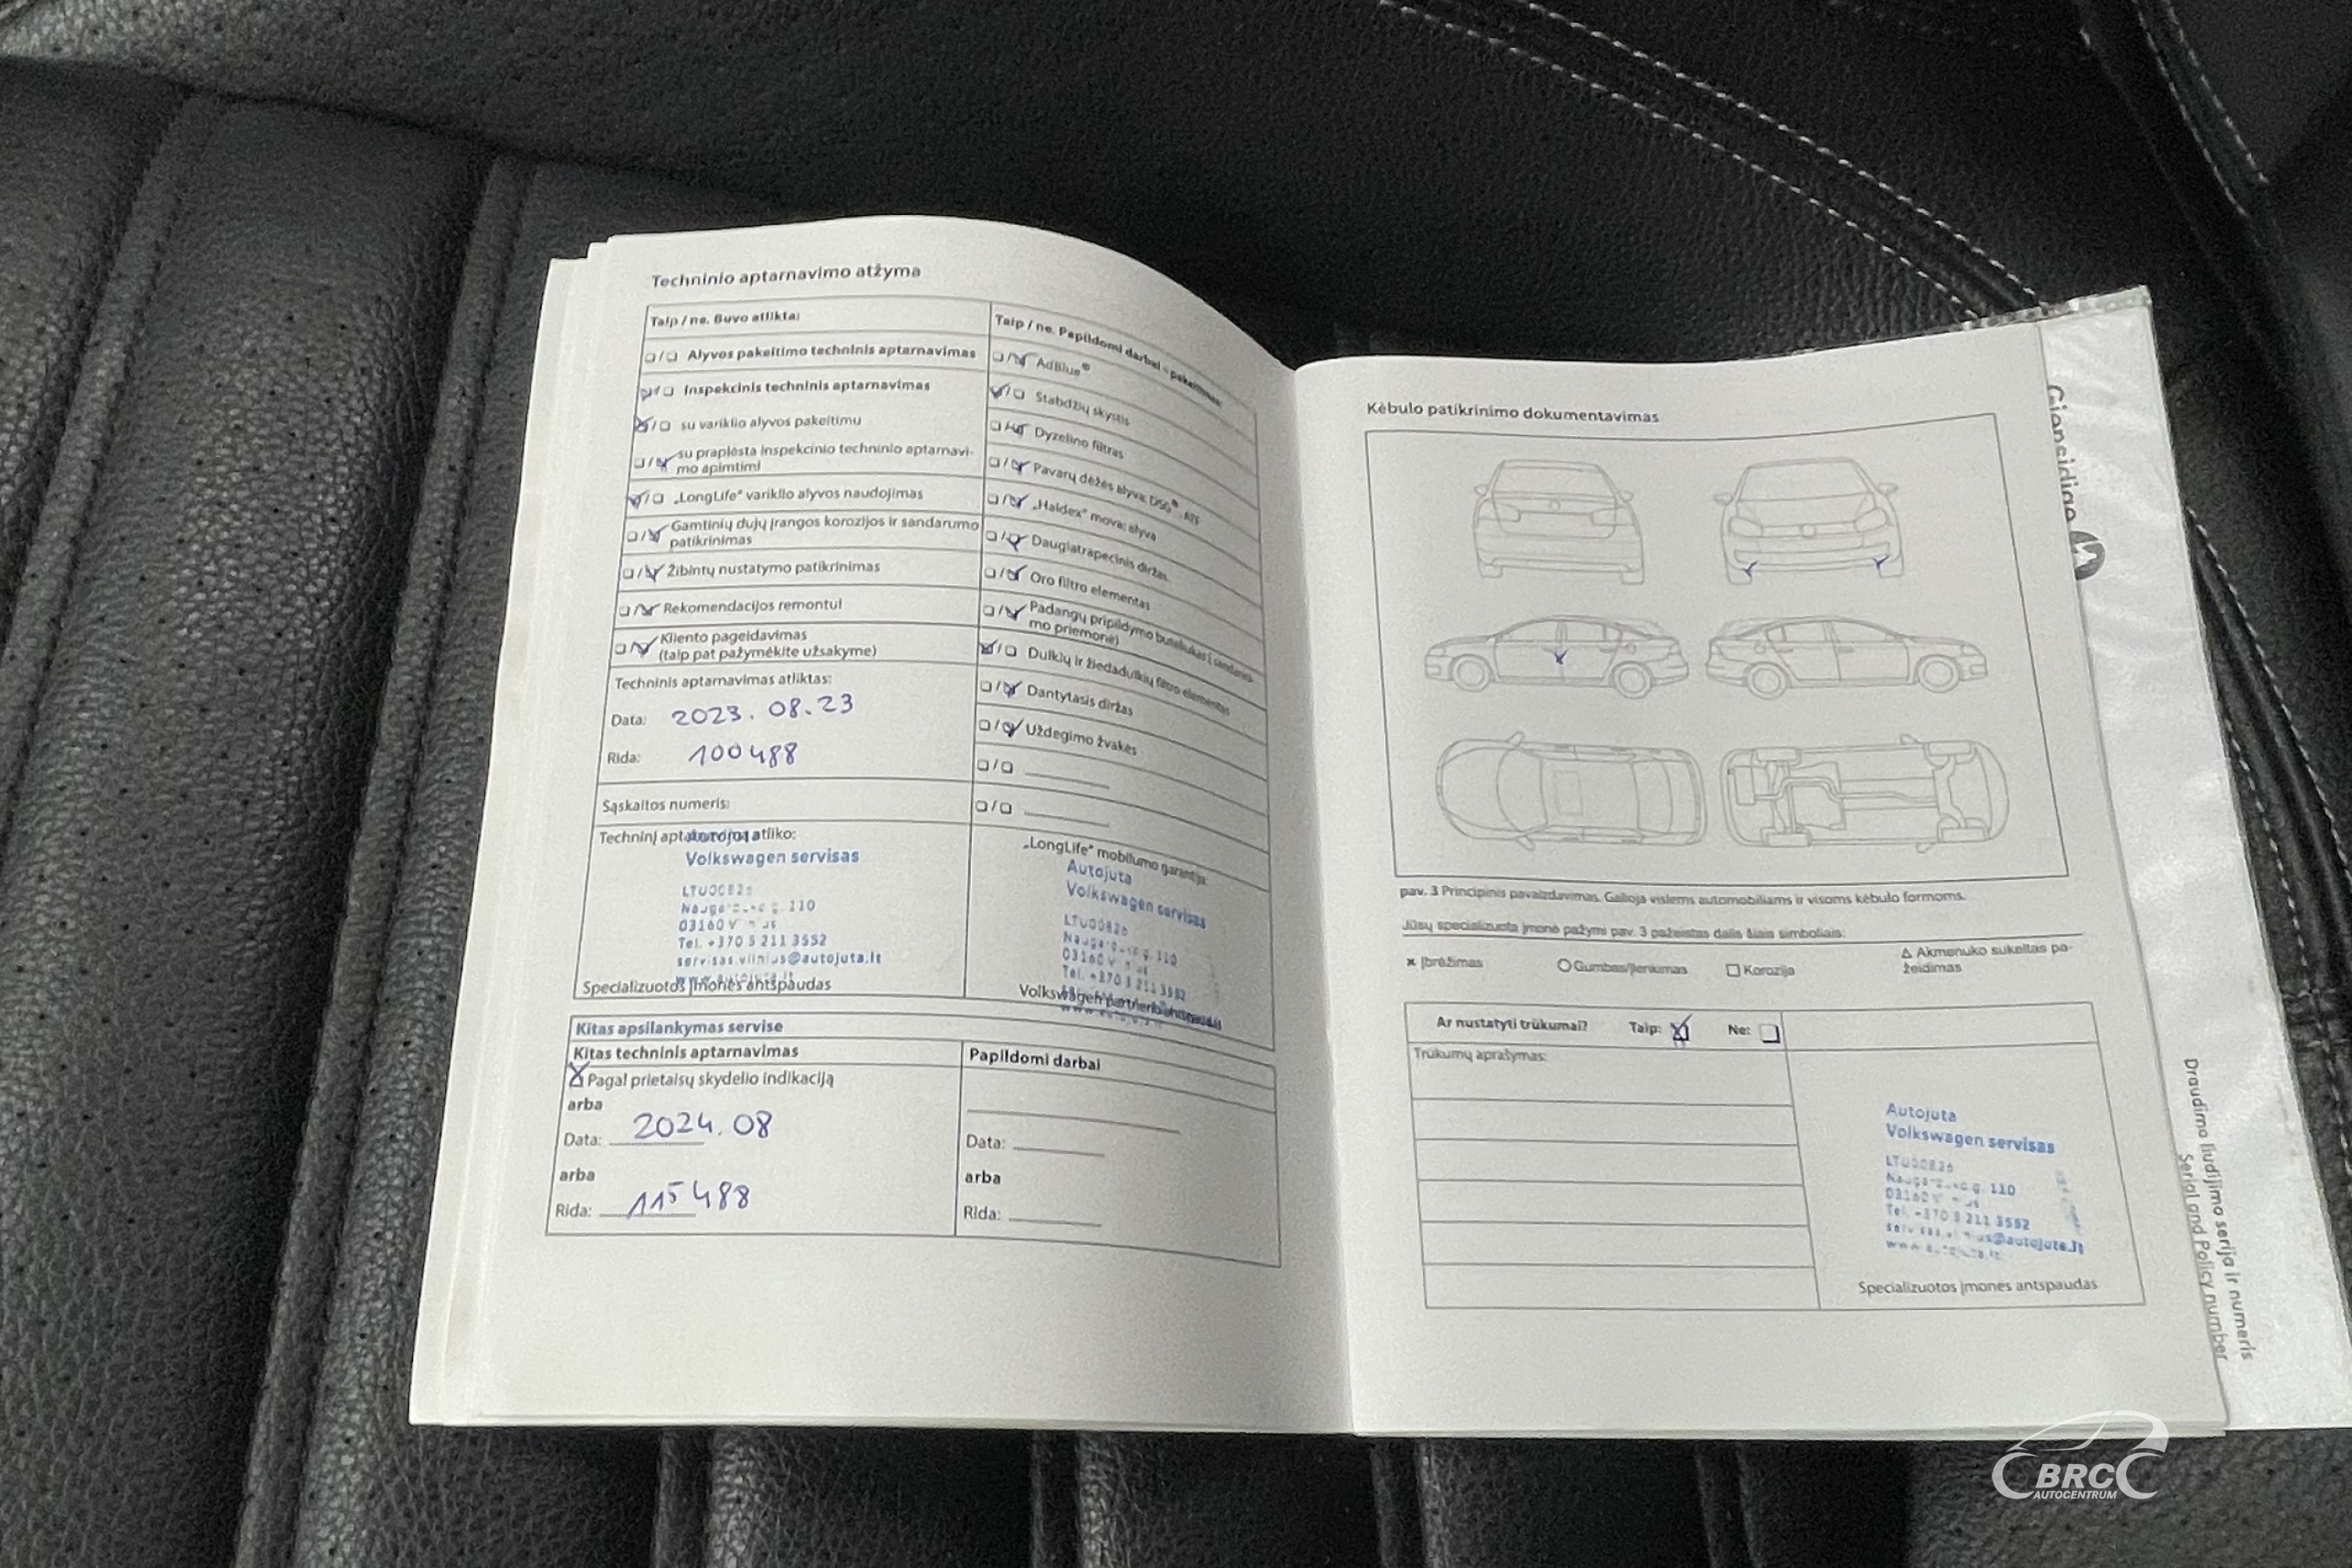 Techninio aptarnavimo atžyma
Taip / ne. Buvo atlikta:
❏/❏ Alyvos pakeitimo techninis aptarnavimas
Inspekcinis techninis aptarnavimas
su variklio alyvos pakeitimu
su praplėsta inspekcinio techninio aptarnavi-
mo apimtimi
„LongLife“ variklio alyvos naudojimas
Gamtinių dujų įrangos korozijos ir sandarumo
patikrinimas
Žibintų nustatymo patikrinimas
Rekomendacijos remontui
Kliento pageidavimas
(taip pat pažymėkite užsakyme)
Techninis aptarnavimas atliktas:
Data: 2023.08.23
Rida: 100488
Sąskaitos numeris:
Techninį aptarnavimą atliko:
Autojuta
Volkswagen servisas
110
03160
Tel. +370 5 211 3552
servisas.vilnius@autojuta.lt
www.autojuta.lt
Specializuotos įmonės antspaudas
Taip / ne. Papildomi darbai - pakeitimas:
AdBlue®
Stabdžių skystis
Dyzelino filtras
Pavarų dėžės alyva: DSG®, ATF
„Haldex“ mova: alyva
Daugiatrapecinis diržas
Oro filtro elementas
Padangų pripildymo buteliukas (
mo priemonė)
Dulkių ir žiedadulkių filtro elementas
Dantytasis diržas
Uždegimo žvakės
❏/❏
❏/❏
„LongLife“ mobilumo garantija:
Autojuta
Volkswagen servisas
110
03160
Tel. +370 5 211 3552
Volkswagen partnerio
Kitas apsilankymas servise
Kitas techninis aptarnavimas
Pagal prietaisų skydelio indikaciją
arba
Data: 2024.08
arba
Rida: 115488
Papildomi darbai
Data:
arba
Rida:
Kėbulo patikrinimo dokumentavimas
pav. 3 Principinis pavaizdavimas. Galioja visiems automobiliams ir visoms kėbulo formoms.
Jūsų specializuota įmonė pažymi pav. 3 pažeistas dalis šiais simboliais:
× Įbrėžimas
○ Gumbas/įlenkimas
□ Korozija
△ Akmenuko sukeltas pa-
žeidimas
Ar nustatyti trūkumai? Taip: Ne:
Trūkumų aprašymas:
Autojuta
Volkswagen servisas
110
03160
Tel. +370 5 211 3552
servisas.vilnius@autojuta.lt
Specializuotos įmonės antspaudas
Gjensidige
Draudimo liudijimo serija ir numeris
Serial and Policy number
BRC
AUTOCENTRUM